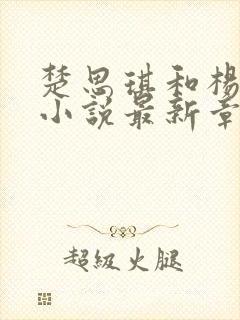 楚思琪和杨
小说最新章
超级火腿